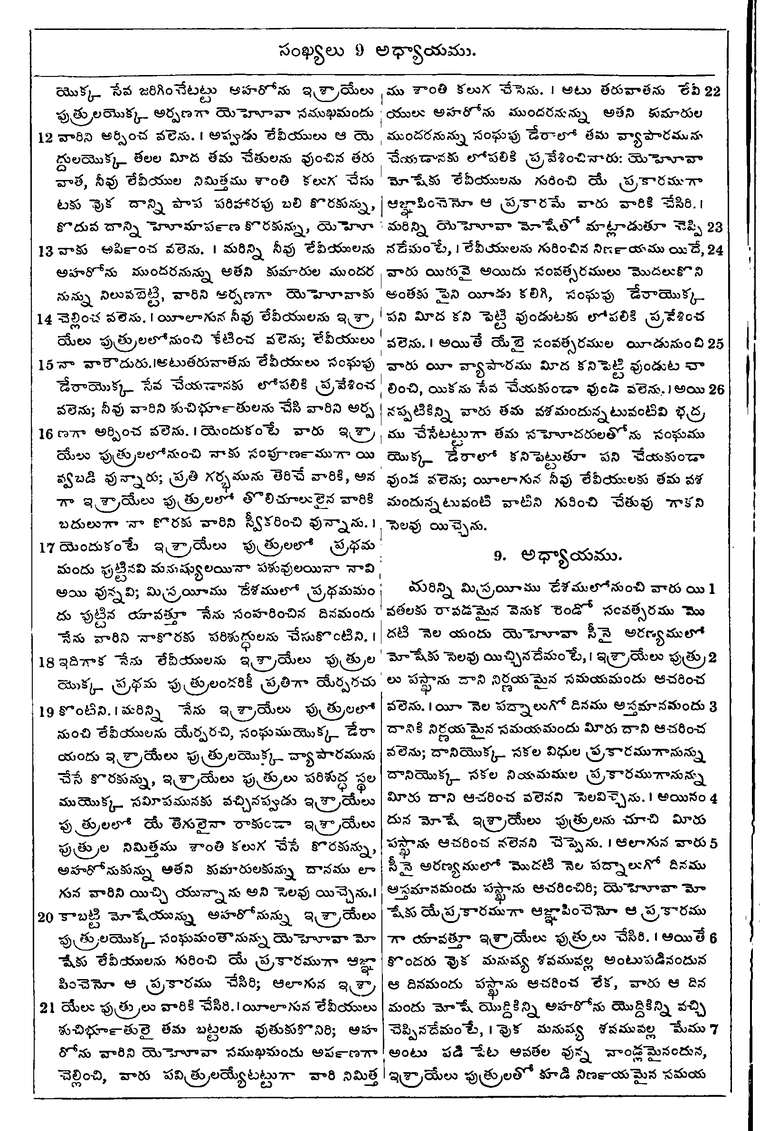 సంఖ్యలు 9 అధ్యాయము.
యొక్క సేవ జరిగించేటట్టు అహరోను ఇశ్రాయేలు
పుత్రులయొక్క అర్పణగా యెహోవా సముఖమందు
12 వారిని అర్పించ వలెను. । అప్పుడు లేవీయులు ఆ యె
ద్దులయొక్క తలల మీద తమ చేతులను వుంచిన తరు
వాత, నీవు లేవీయుల నిమిత్తము శాంతి కలుగ చేసు
టకు వైక దాన్ని పాప పరిహారపు బలి కొరకున్ను,
కొదువ దాన్ని హెూమార్పణ కొరకున్ను, యెహెూ
13 వాకు అర్పించ వలెను. । మరిన్ని నీవు లేవీయులను
అహరోను ముందరనున్ను అతని కుమారుల ముందర
నున్ను నిలువబెట్టి, వారిని అర్పణగా యెహెూవాకు
14 చెల్లించ వలెను. । యీలాగున నీవు లేవీయులను ఇశ్రా
యేలు పుత్రులలోనుంచి కేటించ వలెను; లేవీయులు
15 నా వారౌదురు.।అటుతరువాతను లేవీయులు సంఘపు
డేరాయొక్క సేవ చేయడానకు లోపలికి ప్రవేశించ
వలెను; నీవు వారిని శుచిభూర్తులను చేసి వారిని అర్ప
16 ణగా అర్పించ వలెను. । యెందుకంటే వారు ఇశ్రా
యేలు పుత్రులలోనుంచి నాకు సంపూర్ణముగా యి
వ్వబడి వున్నారు; ప్రతి గర్భమును తెరిచే వారికి, అన
గా ఇశ్రాయేలు పుత్రులలో తొలిచూలులైన వారికి
బదులుగా నా కొరకు వారిని స్వీకరించి వున్నాను. ।
17 యెందుకంటే ఇశ్రాయేలు పుత్రులలో ప్రథమ
మందు పుట్టినవి మనుష్యులయినా పశువులయినా నావి
అయి వున్నవి; మిస్రయీము దేశములో ప్రథమమం
దు పుట్టిన యావత్తూ నేను సంహరించిన దినమందు
నేను వారిని నాకొరకు పరిశుద్ధులను చేసుకొంటిని. ।
18 ఇదిగాక నేను లేవీయులను ఇశ్రాయేలు పుత్రుల
యొక్క ప్రథమ పుత్రులందరికీ ప్రతిగా యేర్పరచు
19 కొంటిని. । మరిన్ని నేను ఇశ్రాయేలు పుత్రులలో
నుంచి లేవీయులను యేర్పరచి, సంఘముయొక్క డేరా
యందు ఇశ్రాయేలు పుత్రులయొక్క వ్యాపారమును
చేసే కొరకున్ను, ఇశ్రాయేలు పుత్రులు పరిశుద్ధ స్థల
ముయొక్క సమీపమునకు వచ్చినప్పుడు ఇశ్రాయేలు
పుత్రులలో యే తెగులైనా రాకుండా ఇశ్రాయేలు
పుత్రుల నిమిత్తము శాంతి కలుగ చేసే కొరకున్ను,
అహరోనుకున్ను అతని కుమారులకున్ను దానము లా
గున వారిని యిచ్చి యున్నాను అని సెలవు యిచ్చెను.।
20 కాబట్టి మోషేయున్ను అహరోనున్ను ఇశ్రాయేలు
పుత్రులయొక్క సంఘమంతానున్ను యెహెూవా మో
షేకు లేవీయులను గురించి యే ప్రకారముగా ఆజ్ఞా
పించెనెూ ఆ ప్రకారము చేసిరి; ఆలాగున ఇశ్రా
21 యేలు పుత్రులు వారికి చేసిరి. । యీలాగున లేవీయులు
శుచిభూర్తులై తమ బట్టలను వుతుకుకొనిరి; అహ
రోను వారిని యెహెూవా సముఖమందు అర్పణగా
చెల్లించి, వారు పవిత్రులయ్యేటట్టుగా వారి నిమిత్త
ము శాంతి కలుగ చేసెను. । అటు తరువాతను లేవీ 22
యులు అహరోను ముందరనున్ను అతని కుమారుల
ముందరనున్ను సంఘపు డేరాలో తమ వ్యాపారమును
చేయడానకు లోపలికి ప్రవేశించినారు: యెహెూవా
మోషేకు లేవీయులను గురించి యే ప్రకారముగా
ఆజ్ఞాపించెనో ఆ ప్రకారమే వారు వారికి చేసిరి. ।
మరిన్ని యెహెూవా మోషేతో మాట్లాడుతూ చెప్పి 23
నదేమంటే, । లేవీయులను గురించిన నిర్ణయము యిదే, 24
వారు యిరువై అయిదు సంవత్సరములు మొదలుకొని
అంతకు పైని యీడు కలిగి, సంఘపు డేరాయొక్క
పని మీద కని పెట్టి వుండుటకు లోపలికి ప్రవేశించ
వలెను. । అయితే యేభై సంవత్సరముల యీడునుంచి 25
వారు యీ వ్యాపారము మీద కనిపెట్టి వుండుట చా
లించి, యికను సేవ చేయకుండా వుండ వలెను. । అయి 26
నప్పటికిన్ని వారు తమ వశమందున్నటువంటివి భద్ర
ము చేసేటట్టుగా తమ సహెూదరులతోను సంఘము
యొక్క డేరాలో కనిపెట్టుతూ పని చేయకుండా
వుండ వలెను; యీలాగున నీవు లేవీయులకు తమ వశ
మందున్నటువంటి వాటిని గురించి చేతువు గాకని
సెలవు యిచ్చెను.
9. అధ్యాయము.
మరిన్ని మిస్రయీము దేశములోనుంచి వారు యి 1
వతలకు రావడమైన వెనుక రెండో సంవత్సరము మొ
దటి నెల యందు యెహెూవా సీనై అరణ్యములో
మోషేకు సెలవు యిచ్చినదేమంటే, । ఇశ్రాయేలు పుత్రు 2
లు పస్ఖాను దాని నిర్ణయమైన సమయమందు ఆచరించ
వలెను. । యీ నెల పద్నాలుగో దినము అస్తమానమందు 3
దానికి నిర్ణయమైన సమయమందు మీరు దాని ఆచరించ
వలెను; దానియొక్క సకల విధుల ప్రకారముగానున్ను
దానియొక్క సకల నియమముల ప్రకారముగానున్ను
మీరు దాని ఆచరించ వలెనని సెలవిచ్చెను. । అయినం 4
దున మోషే ఇశ్రాయేలు పుత్రులను చూచి మీరు
పస్ఖాను ఆచరించ వలెనని చెప్పెను. । ఆలాగున వారు 5
సీనై అరణ్యములో మొదటి నెల పద్నాలుగో దినము
అస్తమానమందు పస్ఖాను ఆచరించిరి; యెహెూవా మో
షేకు యేప్రకారముగా ఆజ్ఞాపించెనెూ ఆ ప్రకారము
గా యావత్తూ ఇశ్రాయేలు పుత్రులు చేసిరి. । అయితే 6
కొందరు వైక మనుష్య శవమువల్ల అంటుపడినందున
ఆ దినమందు పస్ఖాను ఆచరించ లేక, వారు ఆ దిన
మందు మోషే యొద్దికిన్ని అహరోను యొద్దికిన్ని వచ్చి
చెప్పినదేమంటే, । వైక మనుష్య శవమువల్ల మేము 7
అంటు పడి పేట అవతల వున్న వాండ్లమైనందున,
ఇశ్రాయేలు పుత్రులతో కూడి నిర్ణయమైన సమయ